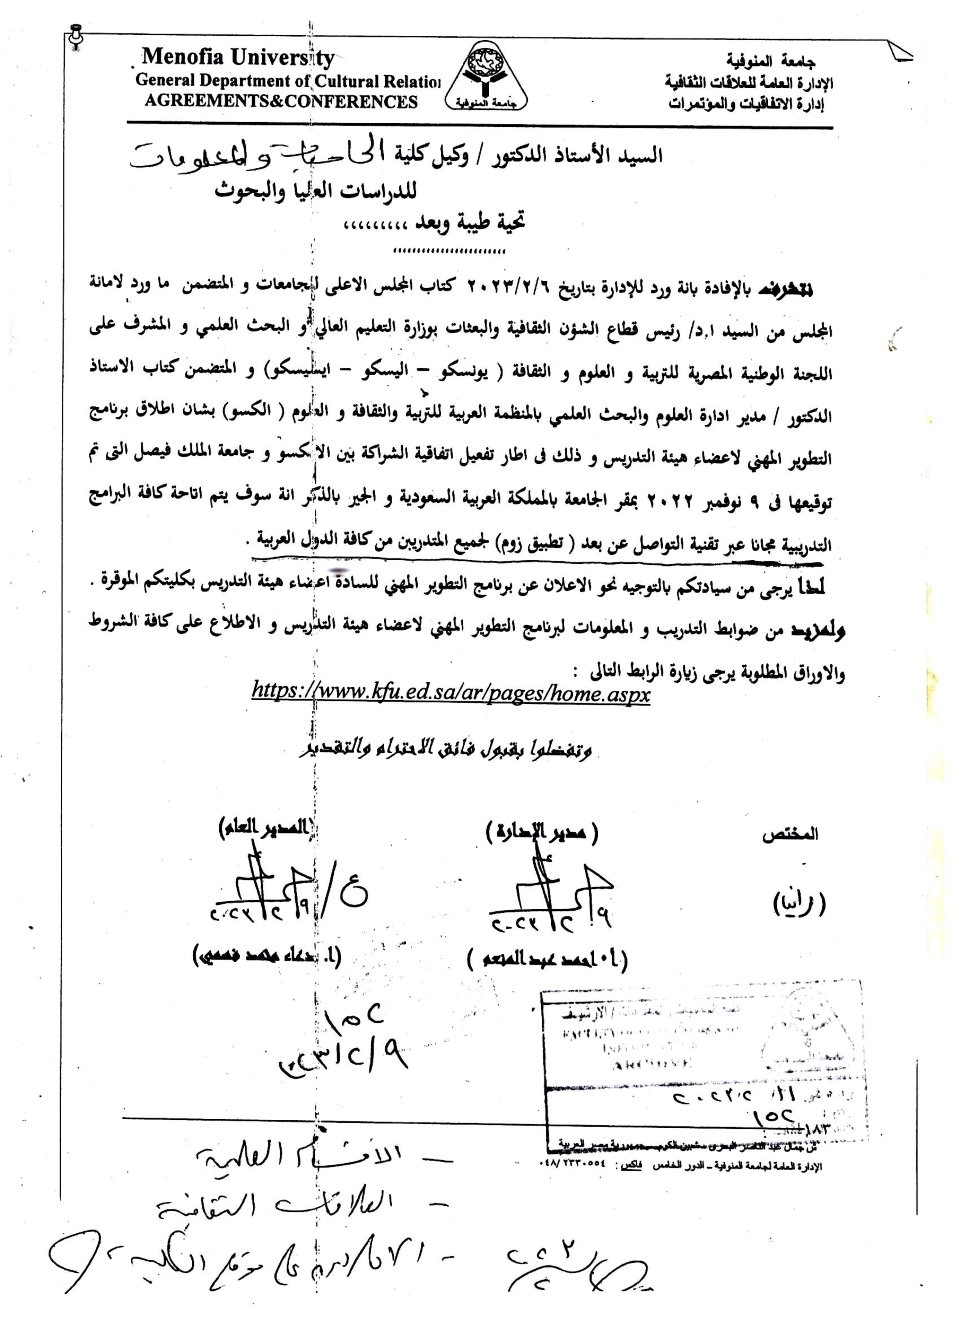 Menofia University
General Department of Cultural Relation
AGREEMENTS&CONFERENCES
جامعة المنوفية
جامعة المنوفية
الإدارة العامة للعلاقات الثقافية
إدارة الاتفاقيات والمؤتمرات
السيد الأستاذ الدكتور / وكيل كلية الحاسبات والمعلومات
للدراسات العليا والبحوث
تحية طيبة وبعد ،،،،،،،،،
،،،،،،،،،،،،،،،،،،،،،،
نتشرف بالإفادة بانة ورد للإدارة بتاريخ ٢٠٢٣/٢/٦ كتاب المجلس الاعلى للجامعات و المتضمن ما ورد لامانة
المجلس من السيد ا.د/ رئيس قطاع الشؤن الثقافية والبعثات بوزارة التعليم العالي و البحث العلمي و المشرف على
اللجنة الوطنية المصرية للتربية و العلوم و الثقافة ( يونسكو – اليسكو – ايسيسكو) و المتضمن كتاب الاستاذ
الدكتور / مدير ادارة العلوم والبحث العلمي بالمنظمة العربية للتربية والثقافة و العلوم ( الكسو) بشان اطلاق برنامج
التطوير المهني لاعضاء هيئة التدريس و ذلك فى اطار تفعيل اتفاقية الشراكة بين الالكسو و جامعة الملك فيصل التى تم
توقيعها فى ٩ نوفمبر ٢٠٢٢ بمقر الجامعة بالمملكة العربية السعودية و الجير بالذكر انة سوف يتم اتاحة كافة البرامج
التدريبية مجانا عبر تقنية التواصل عن بعد ( تطبيق زوم) لجميع المتدربين من كافة الدول العربية .
لذا يرجى من سيادتكم بالتوجيه نحو الاعلان عن برنامج التطوير المهني للسادة اعضاء هيئة التدريس بكليتكم الموقرة .
ولمزيد من ضوابط التدريب و المعلومات لبرنامج التطوير المهني لاعضاء هيئة التدريس و الاطلاع على كافة الشروط
والاوراق المطلوبة يرجى زيارة الرابط التالى :
https://www.kfu.ed.sa/ar/pages/home.aspx
وتفضلوا بقبول فائق الاحترام والتقدير
المختص
(مدير الإدارة )
المدير العام)
( رانيا)
٢٠٢٣/٢/٩
ع/ ٢٠٢٣/٢/٩
(أ٠احمد عبد المنعم )
(ا. دعاء محمد فهمي)
١٥٢
٢٠٢٣/٢/٩
ARCHIVE
١٥٢
ش جمال عبد الناصر البحرى – شبين الكوم – جمهورية مصر العربية
الإدارة العامة لجامعة المنوفية – الدور الخامس فاكس : ٠٤٨/٢٣٣٠٥٥٤
– الأقسام العلمية
– العلاقات الثقافية